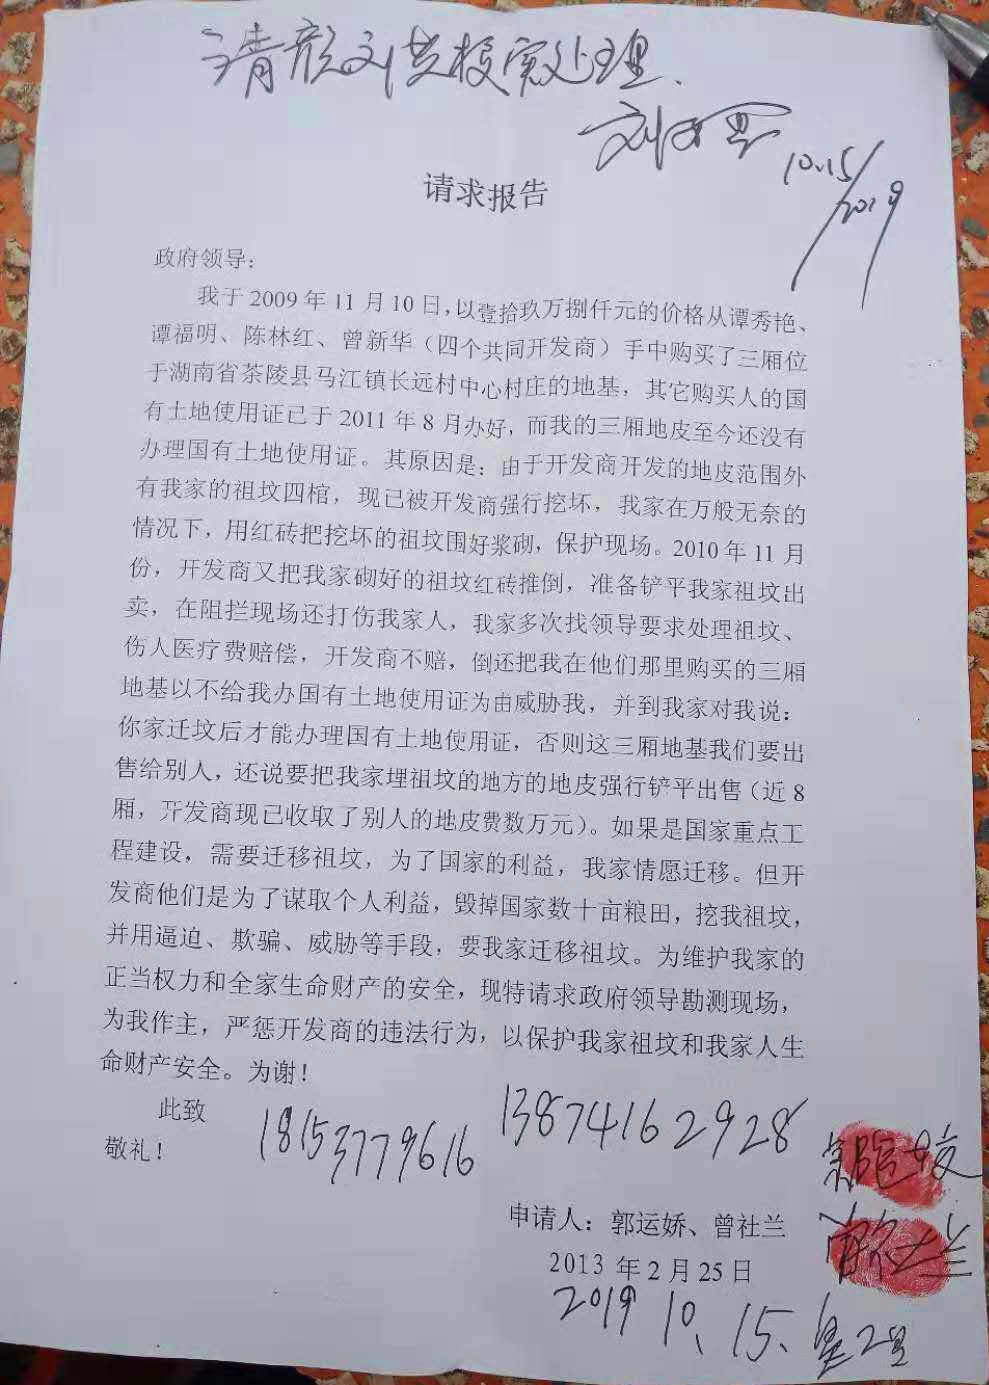 处理.
10.15/2019
请求报告
政府领导：
我于2009年11月10日，以壹拾玖万捌仟元的价格从谭秀艳、
谭福明、陈林红、曾新华（四个共同开发商）手中购买了三厢位
于湖南省茶陵县马江镇长远村中心村庄的地基，其它购买人的国
有土地使用证已于2011年8月办好，而我的三厢地皮至今还没有
办理国有土地使用证。其原因是：由于开发商开发的地皮范围外
有我家的祖坟四棺，现已被开发商强行挖坏，我家在万般无奈的
情况下，用红砖把挖坏的祖坟围好浆砌，保护现场。2010年11月
份，开发商又把我家砌好的祖坟红砖推倒，准备铲平我家祖坟出
卖，在阻拦现场还打伤我家人，我家多次找领导要求处理祖坟、
伤人医疗费赔偿，开发商不赔，倒还把我在他们那里购买的三厢
地基以不给我办国有土地使用证为由威胁我，并到我家对我说：
你家迁坟后才能办理国有土地使用证，否则这三厢地基我们要出
售给别人，还说要把我家埋祖坟的地方的地皮强行铲平出售（近8
厢，开发商现已收取了别人的地皮费数万元）。如果是国家重点工
程建设，需要迁移祖坟，为了国家的利益，我家情愿迁移。但开
发商他们是为了谋取个人利益，毁掉国家数十亩粮田，挖我祖坟，
并用逼迫、欺骗、威胁等手段，要我家迁移祖坟。为维护我家的
正当权力和全家生命财产的安全，现特请求政府领导勘测现场，
为我作主，严惩开发商的违法行为，以保护我家祖坟和我家人生
命财产安全。为谢！
此致
敬礼！
18153779616 13874162928
申请人：郭运娇、曾社兰
2013年2月25日
2019 10、15、星2